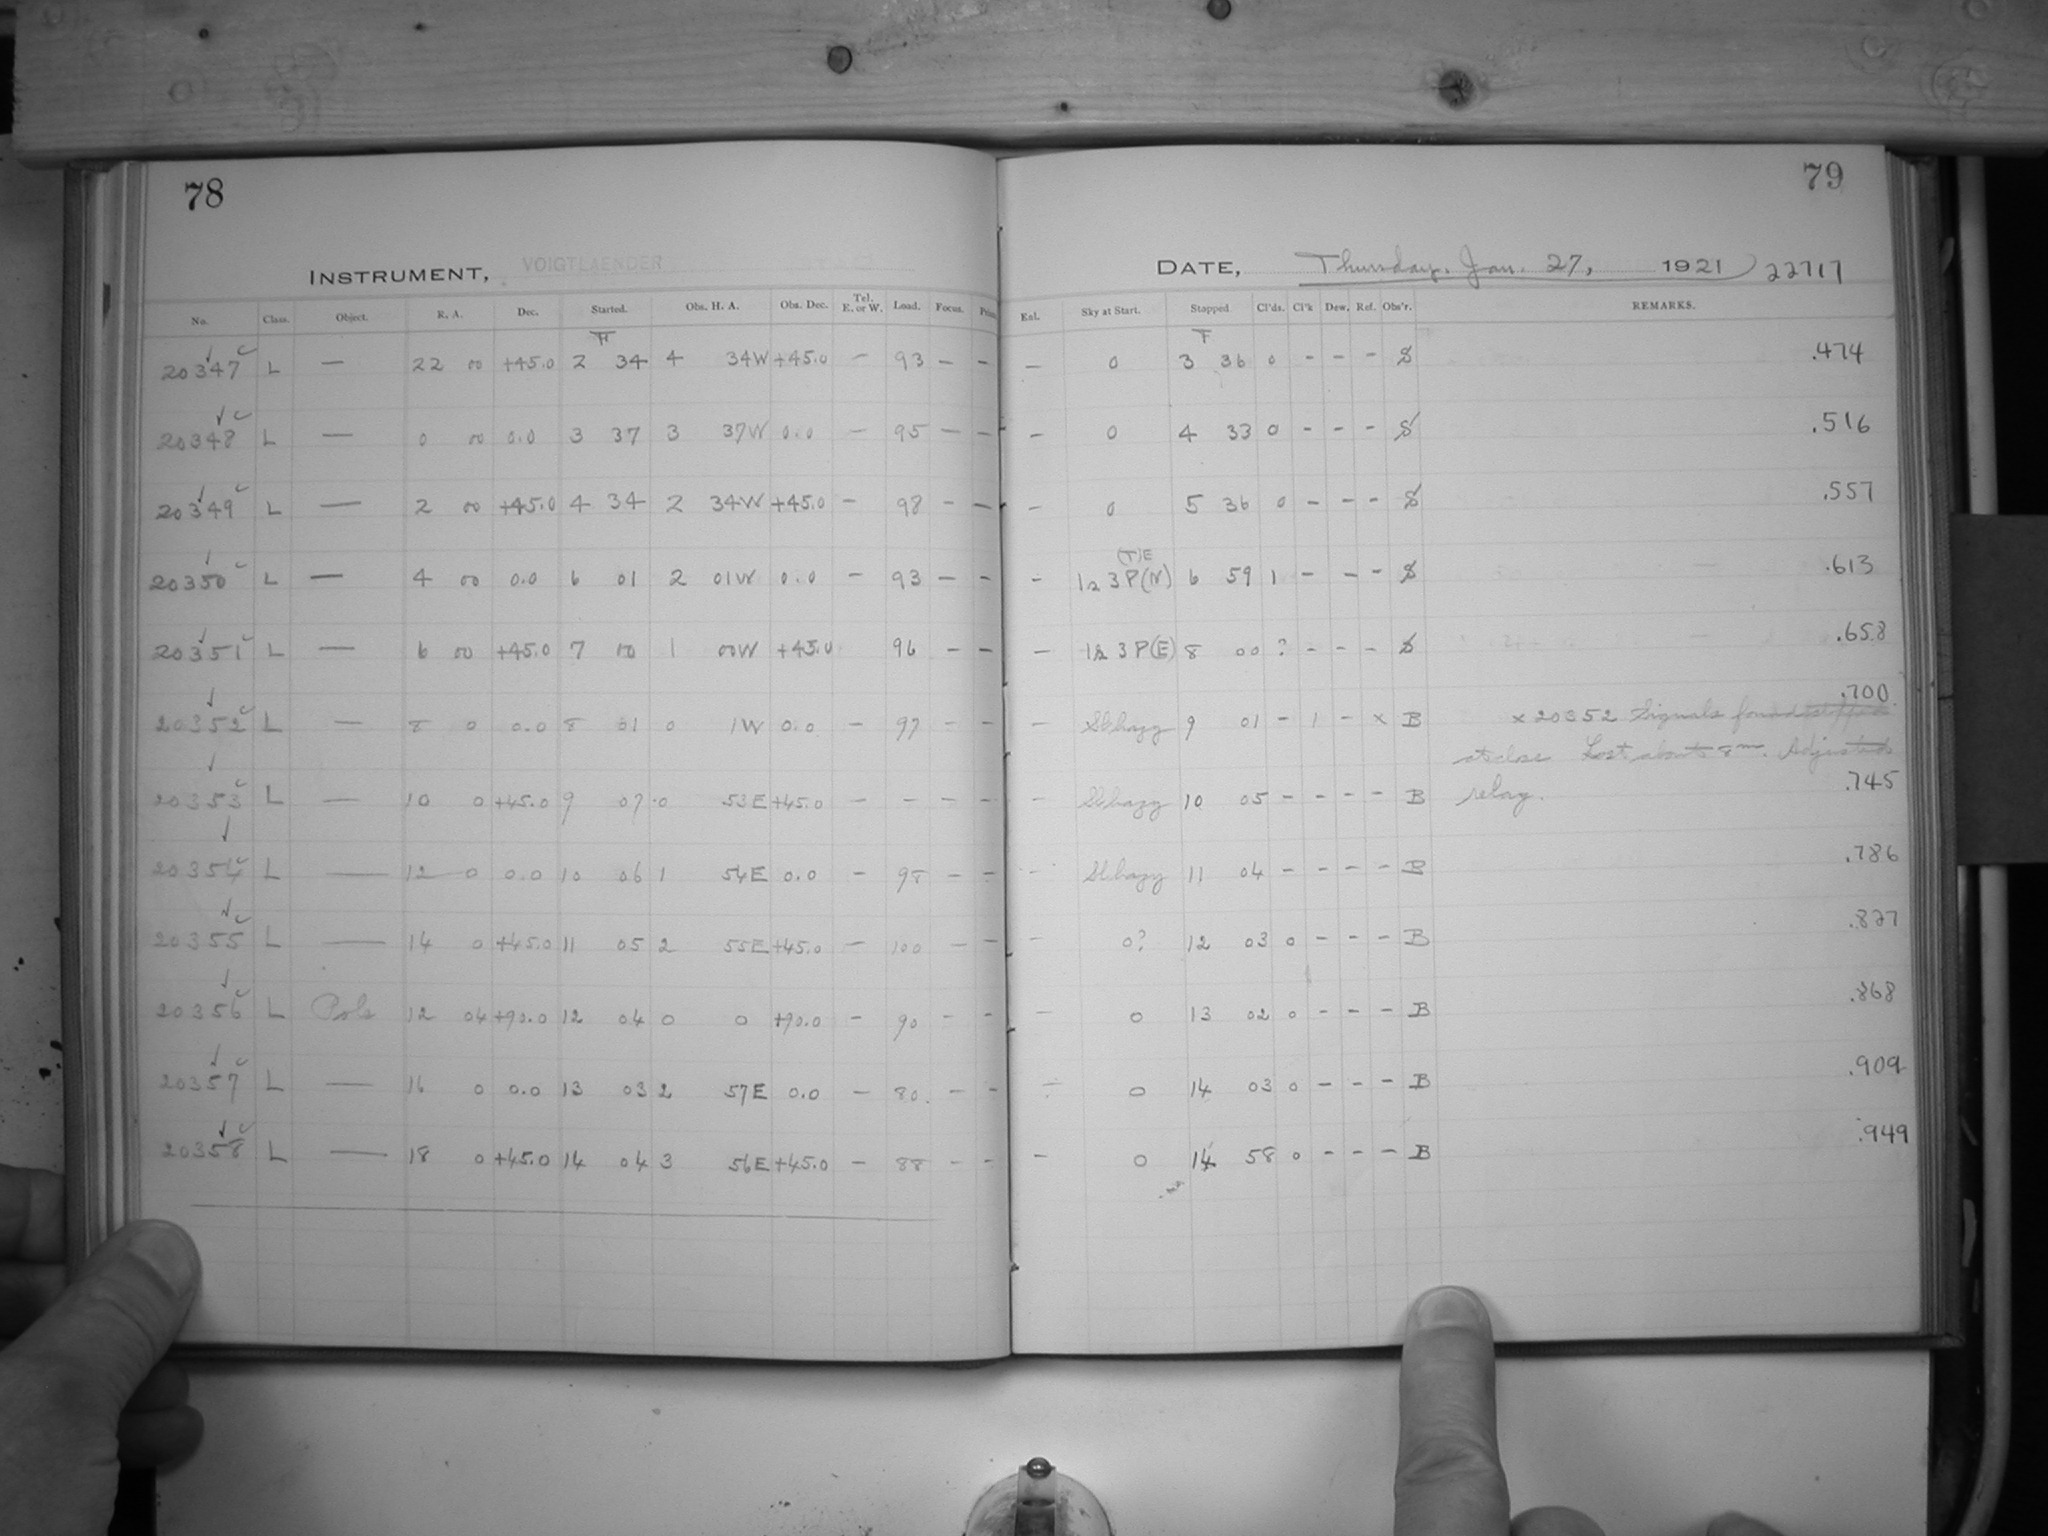 78
79
INSTRUMENT, VOIGTLAENDER
DATE, Thursday, Jan. 27, 1921 22717
No. Class. Object. R. A. Dec. Started. Obs. H. A. Obs. Dec. Tel. E. or W. Load. Focus. Prism
Ext. Sky at Start. Stopped Cl'ds. Cl'k Dew. Ref. Obs'r. REMARKS.
20347 L — 22 00 +45.0 2 34 4 34W +45.0 — 93 — — — 0 3 36 0 - - - S .474
20348 L — 0 00 0.0 3 37 3 37W 0.0 — 95 — — — 0 4 33 0 - - - S .516
20349 L — 2 00 +45.0 4 34 2 34W +45.0 — 98 — — — 0 5 36 0 - - - S .557
(T)E
20350 L — 4 00 0.0 6 01 2 01W 0.0 — 93 — — — 3P(N) 6 59 1 - - - S .613
20351 L — 6 00 +45.0 7 00 1 00W +45.0 96 — — — 3P(E) 8 00 ? - - - S .658
20352 L — 8 0 0.0 8 01 0 1W 0.0 — 97 — — — Sl hazy 9 01 - 1 - x B .700
x 20352 Signals found
at close Lost about 8m. Adjusted
relay.
20353 L — 10 0 +45.0 9 07 0 53E +45.0 — — — — — Sl hazy 10 05 - - - - B .745
20354 L — 12 0 0.0 10 06 1 54E 0.0 — 98 — — — Sl hazy 11 04 - - - - B .786
20355 L — 14 0 +45.0 11 05 2 55E +45.0 — 100 — — — 0? 12 03 0 - - - B .827
20356 L Pole 12 04 +90.0 12 04 0 0 +90.0 — 90 — — — 0 13 02 0 - - - B .868
20357 L — 16 0 0.0 13 03 2 57E 0.0 — 80 — — — 0 14 03 0 - - - B .909
20358 L — 18 0 +45.0 14 04 3 56E +45.0 — 88 — — — 0 14 58 0 - - - B .949